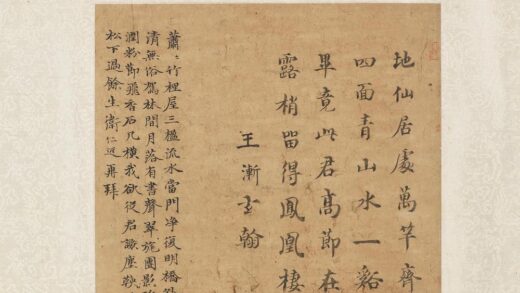 地仙居處萬竿齊
四面青山水一谿
畢竟此君高節在
露梢留得鳳凰棲
王漸玄翰
蕭〻竹裡屋三楹流水當門淨復明橋外
清無俗駕林間月落有書聲翠旄團影
潤粉節飛香石几橫我欲從君謝塵鞅
松下過餘生衛仁近再拜